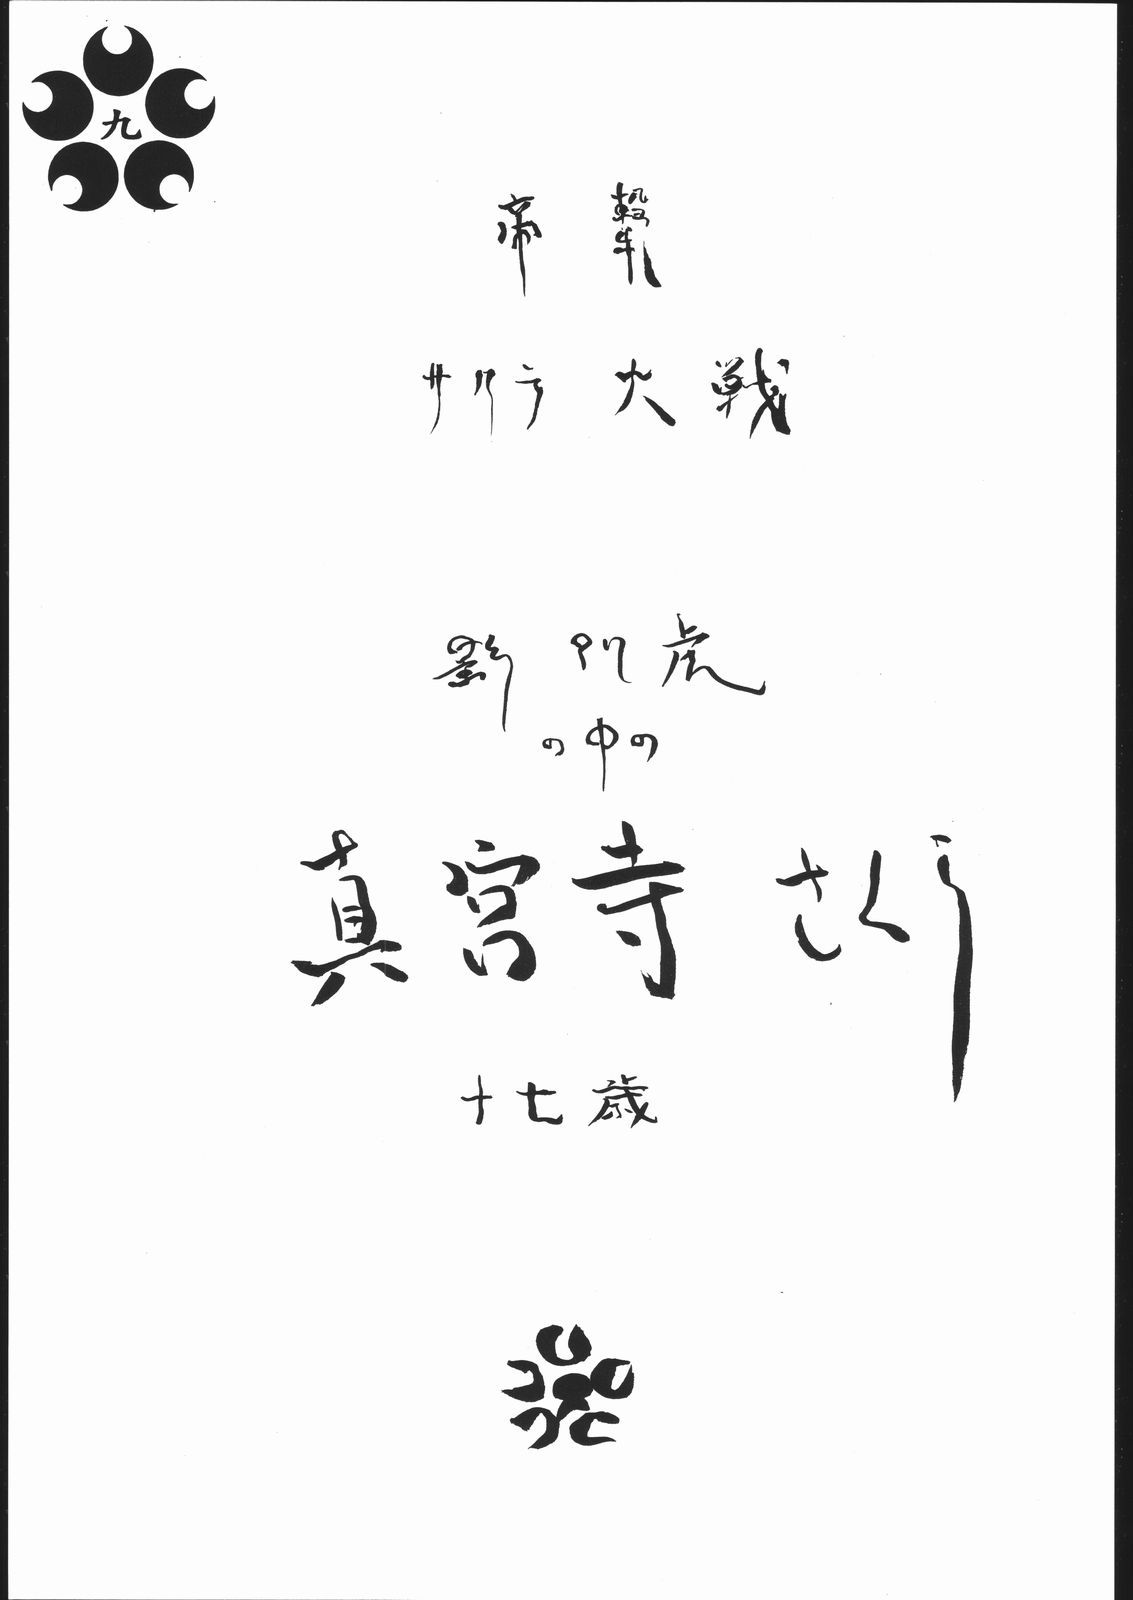 九
帝撃
サクラ大戦
劉阿虎
の中の
真宮寺さくら
十七歳